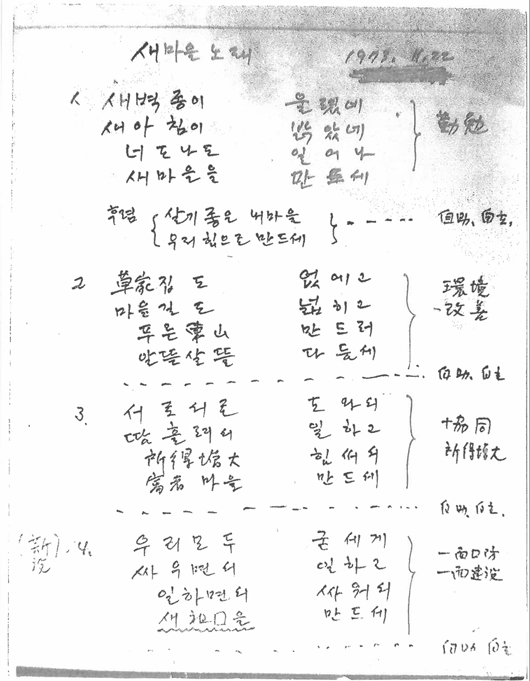 새마을 노래 1973. 11. 22
1. 새벽종이 울렸네
새아침이 밝았네
너도나도 일어나
새마을을 만드세
勤勉
후렴 살기 좋은 내마을
우리 힘으로 만드세
自助, 自立,
2 草家집도 없에고
마을길도 넓히고
푸은東山 만드러
알뜰살뜰 다듬세
環境
改善
自助, 自主
3. 서로서로 도와서
땀흘려서 일하고
所得增大 힘써서
富者마을 만드세
協同
所得增大
自助, 自主.
(新設). 4. 우리모두 굳세게
싸우면서 일하고
일하면서 싸워서
새 만드세
一面口防
一面建設
自助 自主